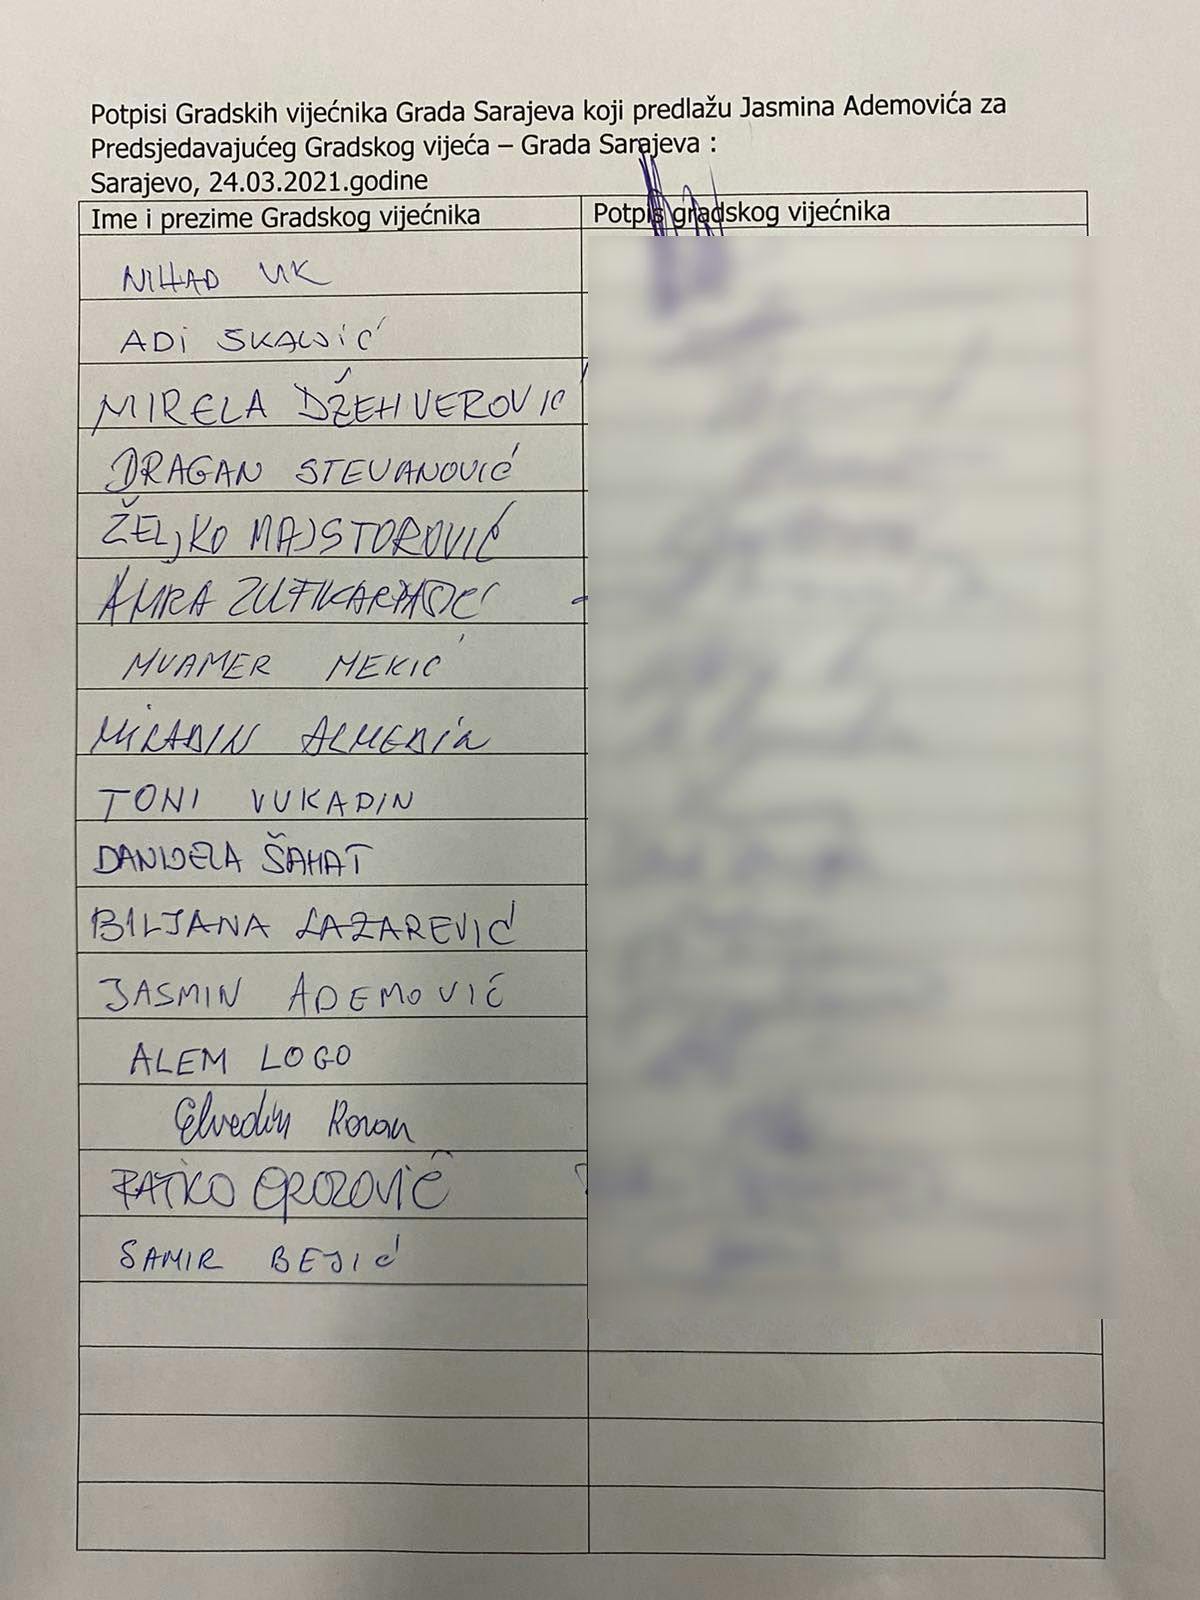 Potpisi Gradskih vijećnika Grada Sarajeva koji predlažu Jasmina Ademovića za
Predsjedavajućeg Gradskog vijeća – Grada Sarajeva :
Sarajevo, 24.03.2021.godine
Ime i prezime Gradskog vijećnika Potpis gradskog vijećnika
NIHAD UK
ADI
MIRELA DŽEHVEROVIĆ
DRAGAN STEVANOVIĆ
ŽELJKO MAJSTOROVIĆ
AMRA
MUAMER MEKIĆ
TONI VUKADIN
DANIJELA ŠAHAT
BILJANA LAZAREVIĆ
JASMIN ADEMOVIĆ
ALEM LOGO
Elvedin
RATKO OROZOVIĆ
SAMIR BEJIĆ